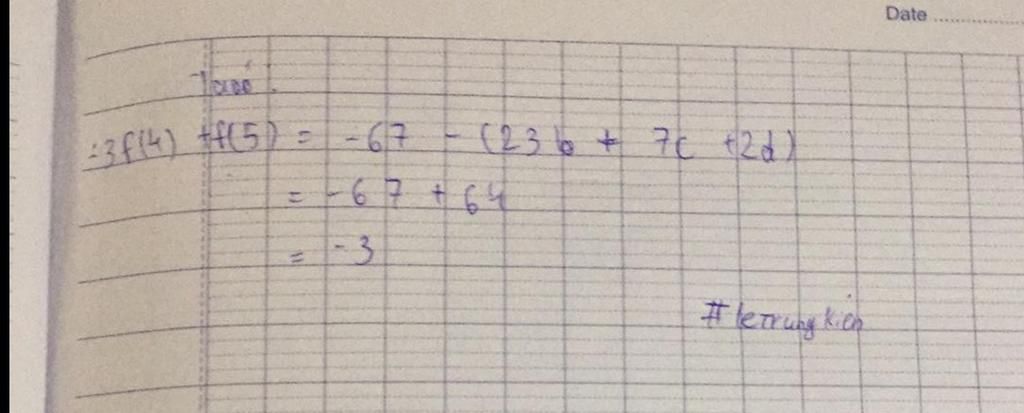 Date
Ta có :
-3f(4) + f(5) = -67 - (23b + 7c + 2d)
= -67 + 64
= -3